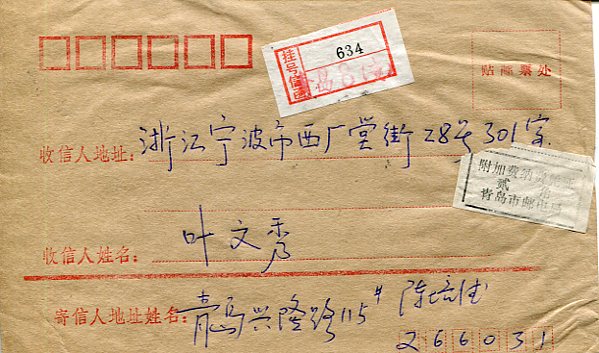 挂号信函
634
贴邮票处
收信人地址:浙江宁波市西厂堂街28号301室
附加费纳
贰角
青岛市邮电局
收信人姓名:叶文秀
寄信人地址姓名:青岛兴隆路115#
266031